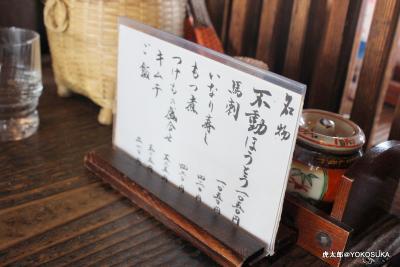 名物
不動ほうとう 一〇五〇円
馬刺 一〇五〇円
いなり寿し
もつ煮 四二〇円
つけもの盛合せ
キムチ
ご飯
虎太郎@YOKOSUKA